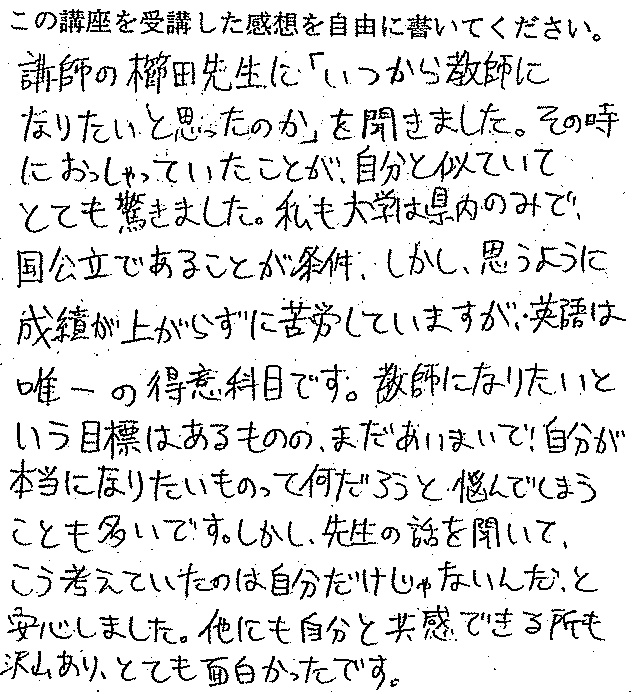 この講座を受講した感想を自由に書いてください。
講師の櫛田先生に「いつから教師に
なりたいと思ったのか」を聞きました。その時
におっしゃっていたことが、自分と似ていて
とても驚きました。私も大学は県内のみで、
国公立であることが条件、しかし、思うように
成績が上がらずに苦労していますが、英語は
唯一の得意科目です。教師になりたいと
いう目標はあるものの、まだあいまいで!自分が
本当になりたいものって何だろうと悩んでしまう
ことも多いです。しかし、先生の話を聞いて、
こう考えていたのは自分だけじゃないんだ、と
安心しました。他にも自分と共感できる所も
沢山あり、とても面白かったです。